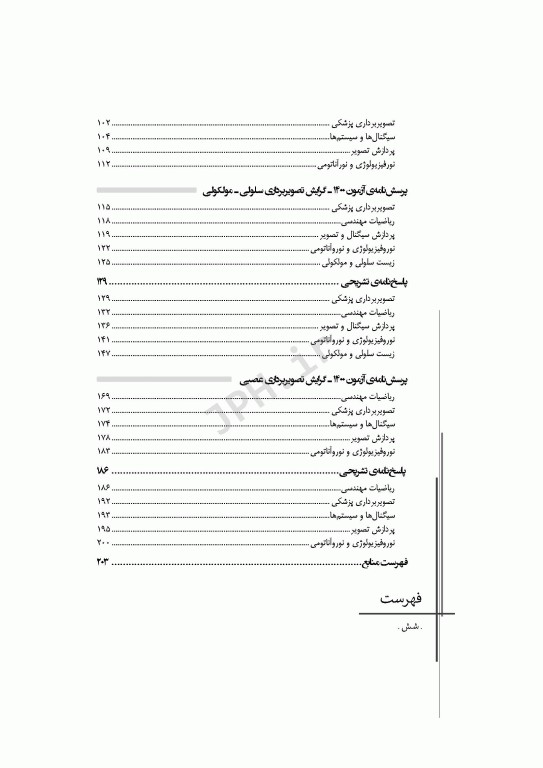 تصویربرداری پزشکی ........ ۱۰۲
سیگنال‌ها و سیستم‌ها ........ ۱۰۴
پردازش تصویر ........ ۱۰۹
نورفیزیولوژی و نورآناتومی ........ ۱۱۲
پرسش‌نامه‌ی آزمون ۱۴۰۰ ــ گرایش تصویربرداری سلولی ــ مولکولی
تصویربرداری پزشکی ........ ۱۱۵
ریاضیات مهندسی ........ ۱۱۸
پردازش سیگنال و تصویر ........ ۱۱۹
نوروفیزیولوژی و نوروآناتومی ........ ۱۲۲
زیست سلولی و مولکولی ........ ۱۲۵
پاسخ‌نامه‌ی تشریحی ........ ۱۲۹
تصویربرداری پزشکی ........ ۱۲۹
ریاضیات مهندسی ........ ۱۳۲
پردازش سیگنال و تصویر ........ ۱۳۶
نوروفیزیولوژی و نوروآناتومی ........ ۱۴۱
زیست سلولی و مولکولی ........ ۱۴۷
پرسش‌نامه‌ی آزمون ۱۴۰۰ ــ گرایش تصویربرداری عصبی
ریاضیات مهندسی ........ ۱۶۹
تصویربرداری پزشکی ........ ۱۷۲
سیگنال‌ها و سیستم‌ها ........ ۱۷۴
پردازش تصویر ........ ۱۷۸
نوروفیزیولوژی و نوروآناتومی ........ ۱۸۳
پاسخ‌نامه‌ی تشریحی ........ ۱۸۶
ریاضیات مهندسی ........ ۱۸۶
تصویربرداری پزشکی ........ ۱۹۲
سیگنال‌ها و سیستم‌ها ........ ۱۹۳
پردازش تصویر ........ ۱۹۵
نوروفیزیولوژی و نوروآناتومی ........ ۲۰۰
فهرست منابع ........ ۲۰۳
فهرست
. شش .
JPH.ir